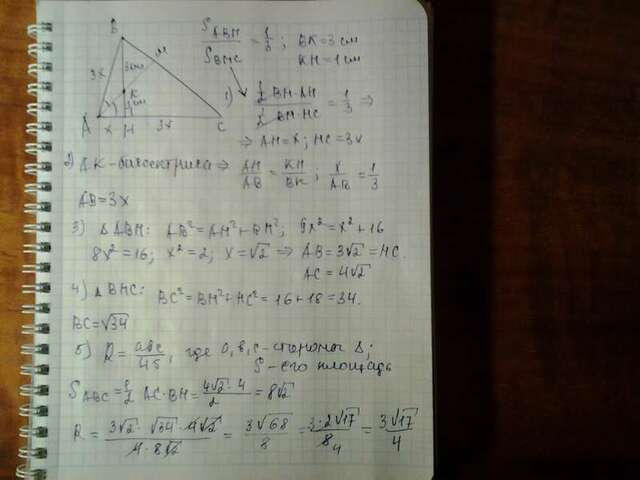 S_ABH / S_BMC = 1/3 ; BK = 3 см
KH = 1 см
B
M
3x
3см
K
1см
A x H 3x C
1) (1/2 BH·AH) / (1/2 BH·HC) = 1/3 ⇒
⇒ AH = x; HC = 3x
2) AK - биссектриса ⇒ AH/AB = KH/BK ; x/AB = 1/3
AB = 3x
3) △ABH: AB² = AH² + BH²; 9x² = x² + 16
8x² = 16; x² = 2; x = √2 ⇒ AB = 3√2 = HC.
AC = 4√2
4) △BHC: BC² = BH² + HC² = 16 + 18 = 34.
BC = √34
5) R = abc/4S, где a, b, c - стороны △;
S - его площадь
S_ABC = 1/2 AC·BH = (4√2 · 4)/2 = 8√2
R = (3√2 · √34 · 4√2)/(4 · 8√2) = 3√68/8 = (3·2√17)/8 4 = 3√17/4